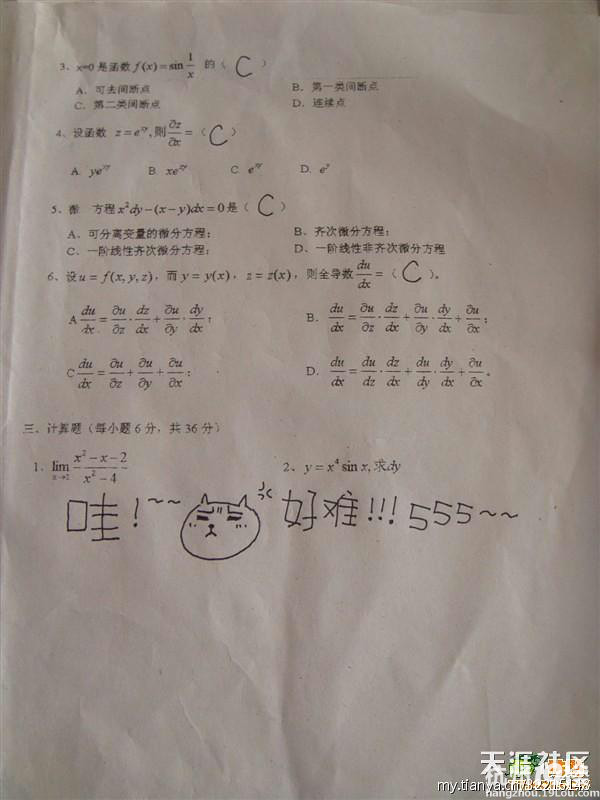 3、x=0 是函数 f(x)=sin 1/x 的（ C ）
A、可去间断点 B、第一类间断点
C、第二类间断点 D、连续点
4、设函数 z=e^{xy}, 则 ∂z/∂x =（ C ）
A. ye^{xy} B. xe^{xy} C. e^{xy} D. e^y
5、微 方程 x²dy−(x−y)dx=0 是（ C ）
A、可分离变量的微分方程； B、齐次微分方程；
C、一阶线性齐次微分方程； D、一阶线性非齐次微分方程
6、设 u=f(x,y,z)，而 y=y(x)，z=z(x)，则全导数 du/dx =（ C ）。
A du/dx = ∂u/∂z · dz/dx + ∂u/∂y · dy/dx； B. du/dx = ∂u/∂z · dz/dx + ∂u/∂y · dy/dx + ∂u/∂x；
C du/dx = ∂u/∂z + ∂u/∂y + ∂u/∂x； D. du/dx = du/dz · dz/dx + du/dy · dy/dx + ∂u/∂x。
三、计算题（每小题 6 分，共 36 分）
1、lim x→2 (x²−x−2)/(x²−4) 2、y=x⁴ sin x, 求dy
哇！~~ 好难!!! 555~~
天涯社区
hangzhou.19lou.com